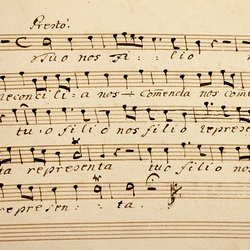 Presto.
tuo nos fi - lio
reconcili - a nos - Comenda nos com
tu - o filio nos filio repre
ta representa tuo filio nos
represen - ta.